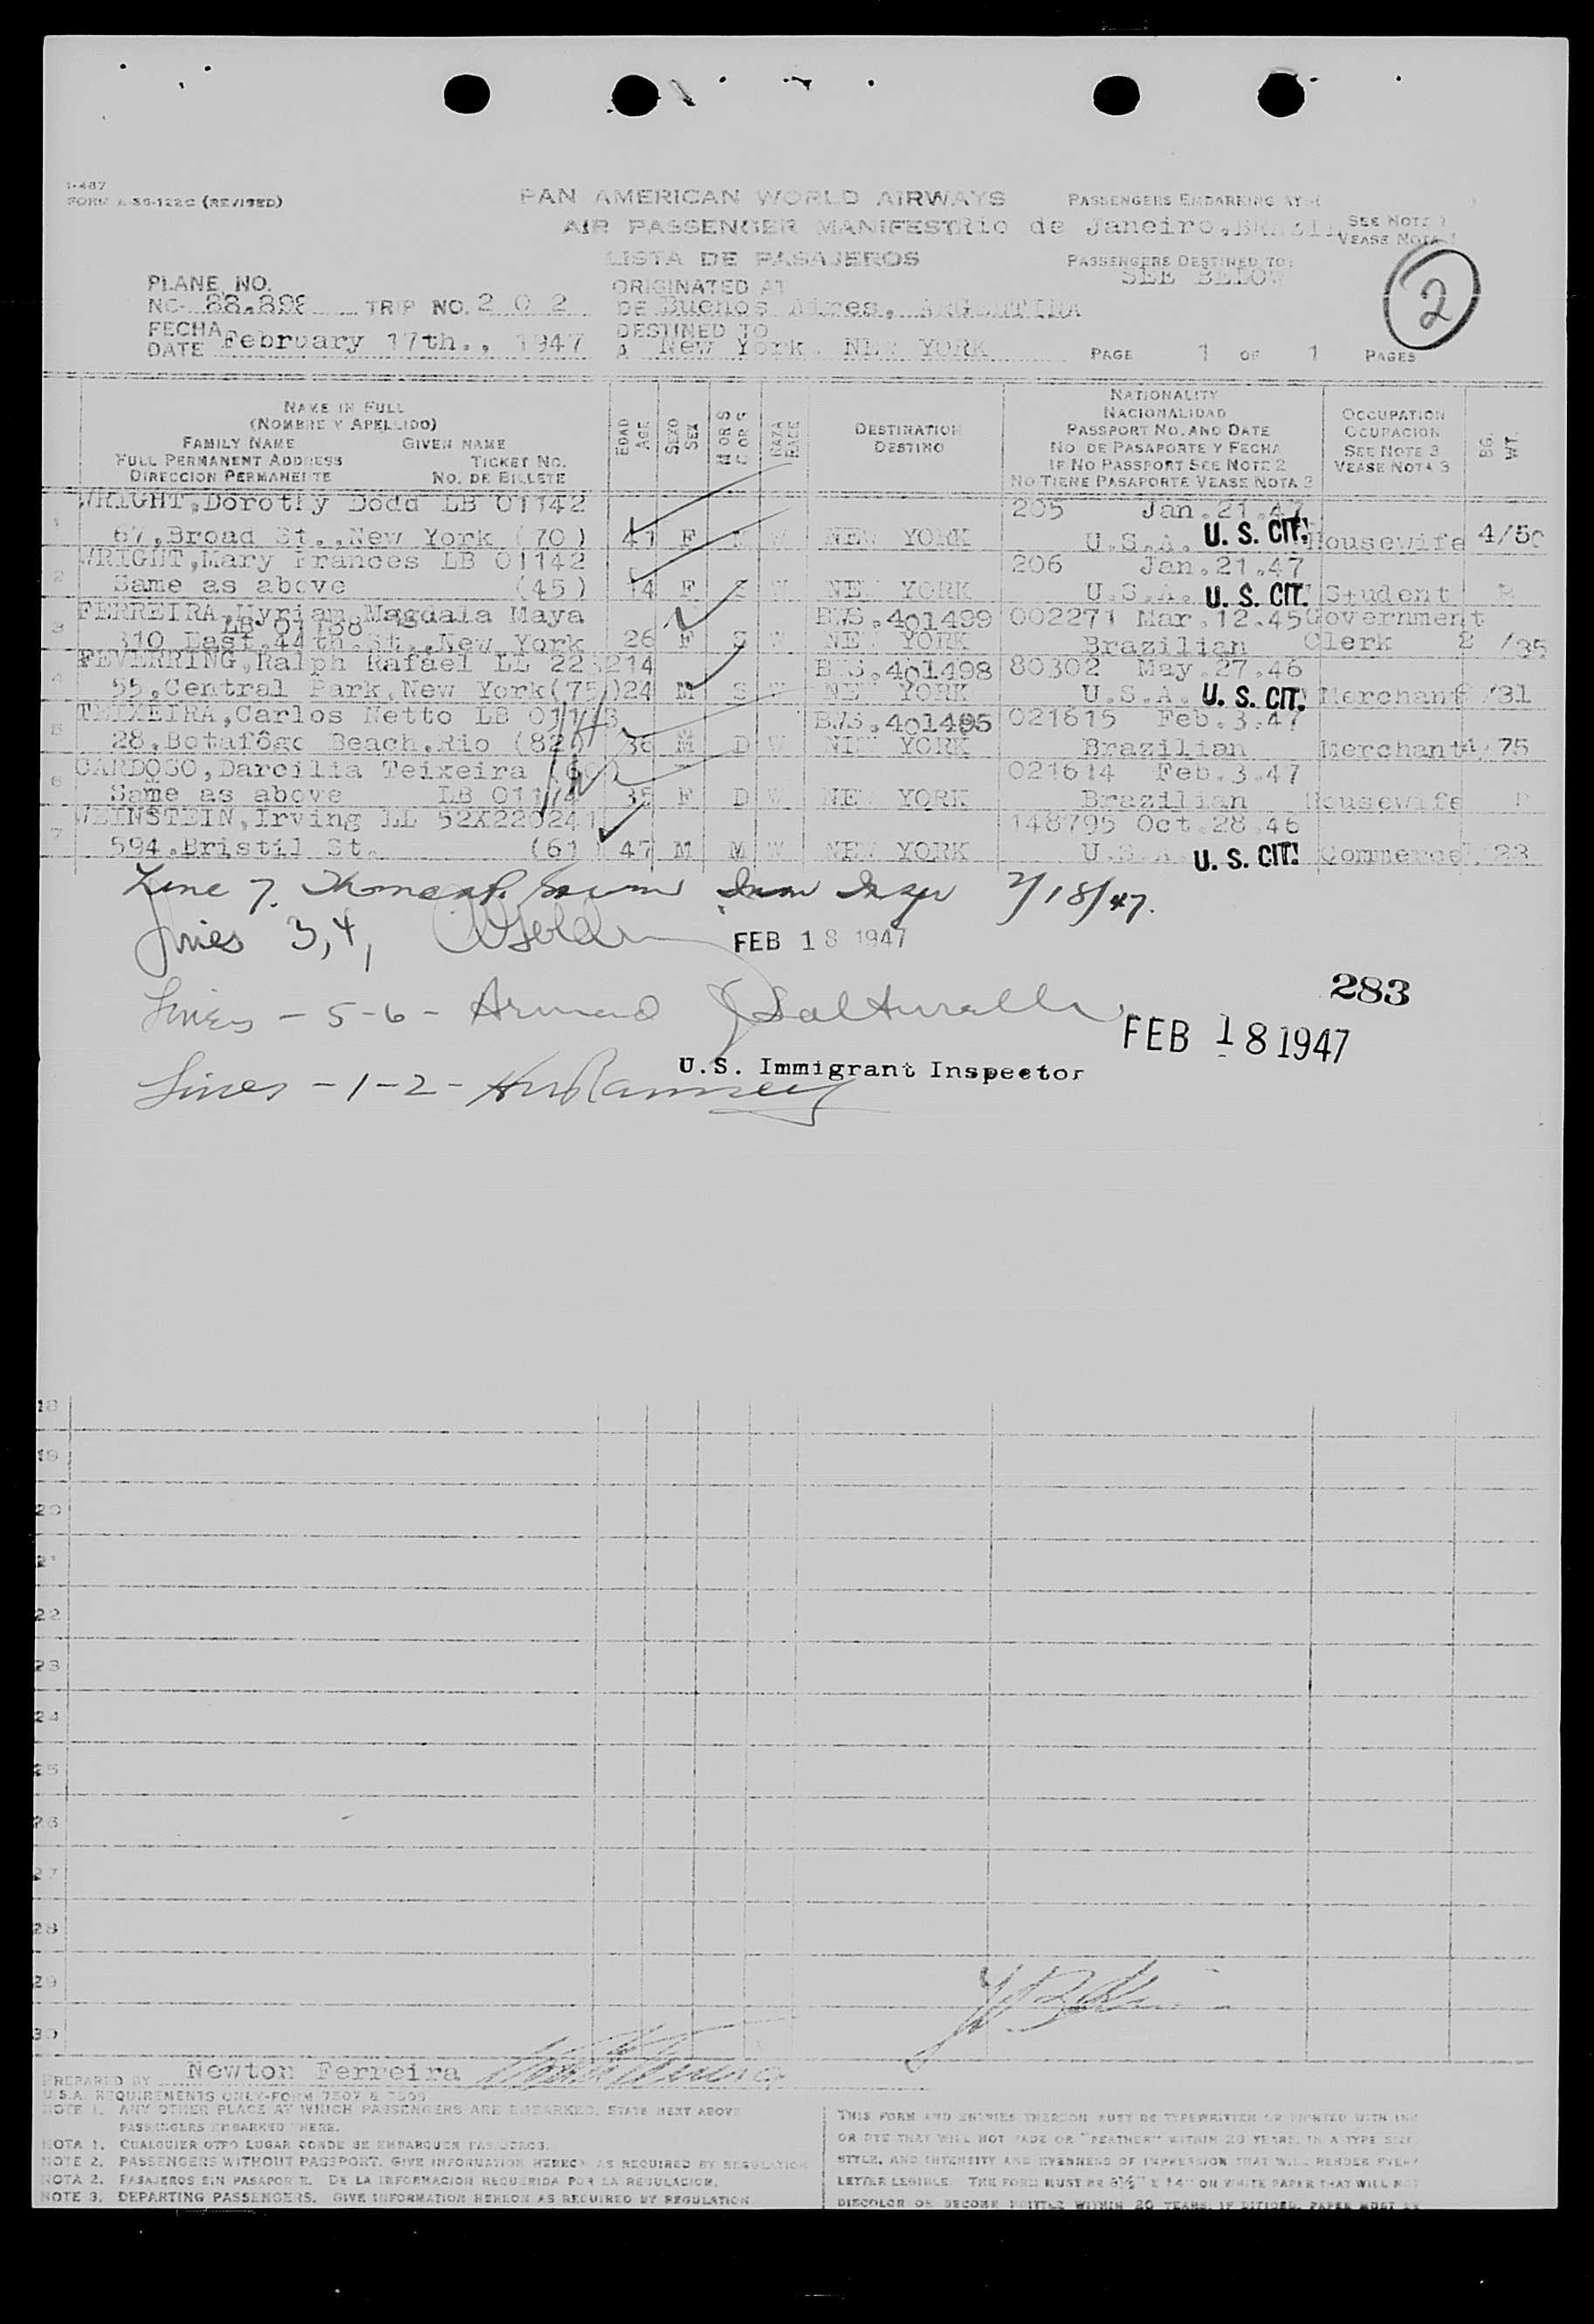 I-487
FORM A-86-122C (REVISED)
PAN AMERICAN WORLD AIRWAYS
AIR PASSENGER MANIFEST
LISTA DE PASAJEROS
PASSENGERS EMBARKING AT
Rio de Janeiro, BRAZIL
SEE NOTE 1
VEASE NOTA 1
PASSENGERS DESTINED TO:
SEE BELOW
2
PLANE NO.
NC- 88.898 TRIP NO. 2 0 2
ORIGINATED AT
DE Buenos Aires, ARGENTINA
FECHA
DATE February 17th., 1947
DESTINED TO
A New York, NEW YORK
PAGE 1 OF 1 PAGES
NAME IN FULL
(NOMBRE Y APELLIDO)
FAMILY NAME GIVEN NAME
FULL PERMANENT ADDRESS TICKET NO.
DIRECCION PERMANENTE NO. DE BILLETE
EDAD AGE
SEXO SEX
M OR S
C OR S
RAZA RACE
DESTINATION
DESTINO
NATIONALITY
NACIONALIDAD
PASSPORT NO. AND DATE
NO DE PASAPORTE Y FECHA
IF NO PASSPORT SEE NOTE 2
NO TIENE PASAPORTE VEASE NOTA 2
OCCUPATION
OCUPACION
SEE NOTE 3
VEASE NOTA 3
BG. WT.
WRIGHT,Dorothy Dodd LB 01142 205 Jan.21.47
1 67,Broad St.,New York (70) 41 F M W NEW YORK U.S.A. U. S. CIT. Housewife 4/50
WRIGHT,Mary Frances LB 01142 206 Jan.21.47
2 Same as above (45) 14 F S W NEW YORK U.S.A. U. S. CIT. Student
FERREIRA,Myriam Magdala Maya BWS.401499 002271 Mar.12.45 Government
3 LB 01138
310 East.44th.St.,New York 26 F S W NEW YORK Brazilian Clerk 2 /35
FEVERRING,Ralph Rafael LL 223214 BWS.401498 80302 May.27.46
4 55,Central Park,New York(75)24 M S W NEW YORK U.S.A. U. S. CIT. Merchant /31
TEIXEIRA,Carlos Netto LB 01143 BWS.401495 021615 Feb.3.47
5 28,Botafôgo Beach,Rio (82) 36 M D W NEW YORK Brazilian Merchant 4/75
CARDOSO,Darcilia Teixeira (60) 021614 Feb.3.47
6 Same as above LB 01174 35 F D W NEW YORK Brazilian Housewife
WEINSTEIN,Irving LL 52X220241 148795 Oct.28.46
7 594,Bristil St. (61) 47 M M W NEW YORK U.S.A. U. S. CIT. Commerce /23
Line 7. 2/18/47.
Lines 3,4, FEB 18 1947
283
Lines - 5-6 - Armand J Salturelli
FEB 18 1947
U.S. Immigrant Inspector
Lines - 1-2 - HW Ramsey
18
19
20
21
22
23
24
25
26
27
28
29
30
PREPARED BY Newton Ferreira
U.S.A. REQUIREMENTS ONLY-FORM 7507 & 7509
NOTE 1. ANY OTHER PLACE AT WHICH PASSENGERS ARE EMBARKED, STATE NEXT ABOVE
PASSENGERS EMBARKED THERE.
NOTA 1. CUALQUIER OTRO LUGAR DONDE SE EMBARQUEN PASAJEROS.
NOTE 2. PASSENGERS WITHOUT PASSPORT. GIVE INFORMATION HEREON AS REQUIRED BY REGULATION
NOTA 2. PASAJEROS SIN PASAPORTE. DE LA INFORMACION REQUERIDA POR LA REGULACION.
NOTE 3. DEPARTING PASSENGERS. GIVE INFORMATION HEREON AS REQUIRED BY REGULATION
THIS FORM AND ENTRIES THEREON MUST BE TYPEWRITTEN OR PRINTED WITH INK
OR DYE THAT WILL NOT FADE OR "FEATHER" WITHIN 20 YEARS, IN A TYPE SIZE,
STYLE, AND INTENSITY AND EVENNESS OF IMPRESSION THAT WILL RENDER EVERY
LETTER LEGIBLE. THE FORM MUST BE 8½" X 14" ON WHITE PAPER THAT WILL NOT
DISCOLOR OR BECOME BRITTLE WITHIN 20 YEARS. IF DITTOED, PAPER MUST BE